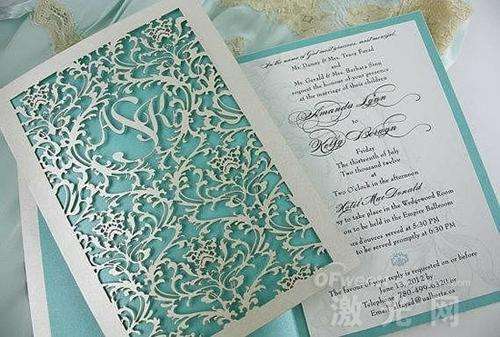 In the name of God most gracious, most merciful,
Mr. Danny & Mrs. Tracy
and
Mr. Gerald & Mrs. Barbara Sing
request the honour of your presence
at the marriage of their children
Amanda Lynn
to
Kelly
Friday
The thirteenth of July
Two thousand twelve
at
Two O'clock in the afternoon
Hotel MacDonald
to take place in the Wedgewood Room
to be held in the Empire Ballroom
served at 5:30 PM
to be served promptly at 6:30 PM
The favour of your reply is requested on or before
June 13, 2012 by
780-499-6320
@ualberta.ca
激光网